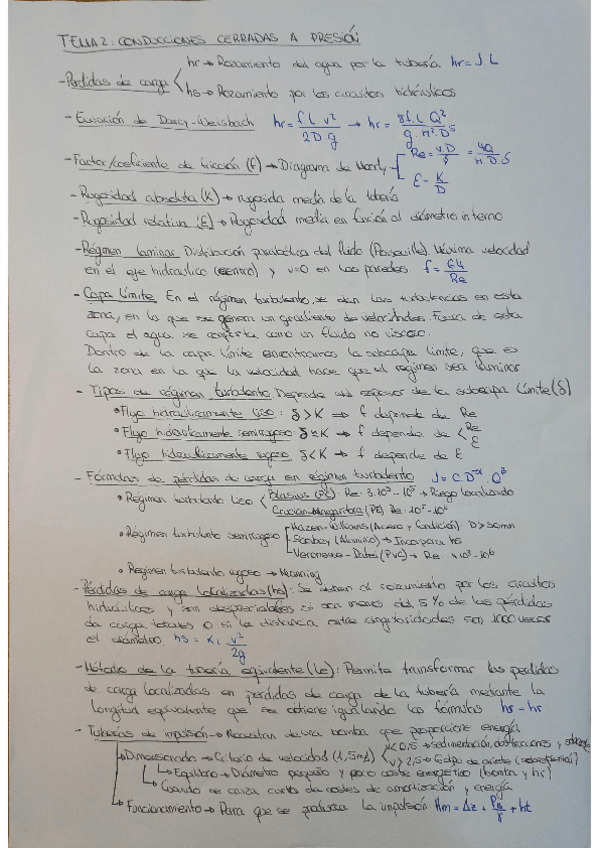 TEMA 2: CONDUCCIONES CERRADAS A PRESIÓN
hr → Rozamiento del agua por la tubería hr = J.L
- Pérdidas de carga
hs → Rozamiento por los circuitos hidráulicos
- Ecuación de Darcy-Weisbach hr = f.L v² / 2D.g → hr = 8f.L Q² / g.π².D⁵
- Factor/coeficiente de fricción (f) → Diagrama de Moody Re = v.D / = 4Q / π.D.
ε = K/D
- Rugosidad absoluta (K) → rugosida media de la tubería
- Rugosidad relativa (ε) → Rugosidad media en función al diámetro interno
- Régimen laminar Distribución parabólica del fluido Máxima velocidad
en el eje hidráulico (centro) y v=0 en las paredes. f = 64/Re
- Capa límite En el régimen turbulento, se dan las turbulencias en esta
zona, en la que se genera un gradiente de velocidades. Fuera de esta
capa el agua se comporta como un fluido no viscoso.
Dentro de la capa límite encontramos la subcapa límite, que es
la zona en la que la velocidad hace que el régimen sea laminar
- Tipos de régimen turbulento. Depende del espesor de la subcapa límite (δ)
• Flujo hidráulicamente liso: δ > K ⇒ f depende de Re
• Flujo hidráulicamente semirrugoso δ ≈ K ⇒ f depende de Re ε
• Flujo hidráulicamente rugoso δ < K ⇒ f depende de ε
- Fórmulas de pérdidas de carga en régimen turbulento J = C.D⁻ᵅ.Qᵝ
• Régimen turbulento liso Blasius (PE): Re: 3.10³ - 10⁵ → Riego localizado
(PE) Re: 10⁵ - 10⁶
Hazen-Williams (Acero y Fundición): D > 50mm
• Régimen turbulento semirrugoso Scobey (Aluminio) → Incorpora hs
Veronesse-Datei (PVC) → Re: 4.10⁴ - 10⁶
• Régimen turbulento rugoso → Manning
- Pérdidas de carga localizadas (hs): Se deben al rozamiento por los circuitos
hidráulicos y son despreciables si son menos del 5% de las pérdidas
de carga totales o si la distancia entre singularidades son 1000 veces
el diámetro. hs = K. v²/2g
- Método de la tubería equivalente (Le): Permite transformar las pérdidas
de carga localizadas en pérdidas de carga de la tubería mediante la
longitud equivalente que se obtiene igualando las fórmulas hs = hr
- Tuberías de impulsión → Necesitan de una bomba que proporcione energía
v < 0,5 → Sedimentación, obstrucciones y
Dimensionado → Criterio de velocidad (1,5 m/s) v > 2,5 → Golpe de ariete (sobrepresión)
Equilibrio → Diámetro pequeño y poco coste energético (bomba y hr)
Cuando se cruza, curva de costes de amortización y energía
Funcionamiento → Para que se produzca la impulsión: Hm = Δz + + ht